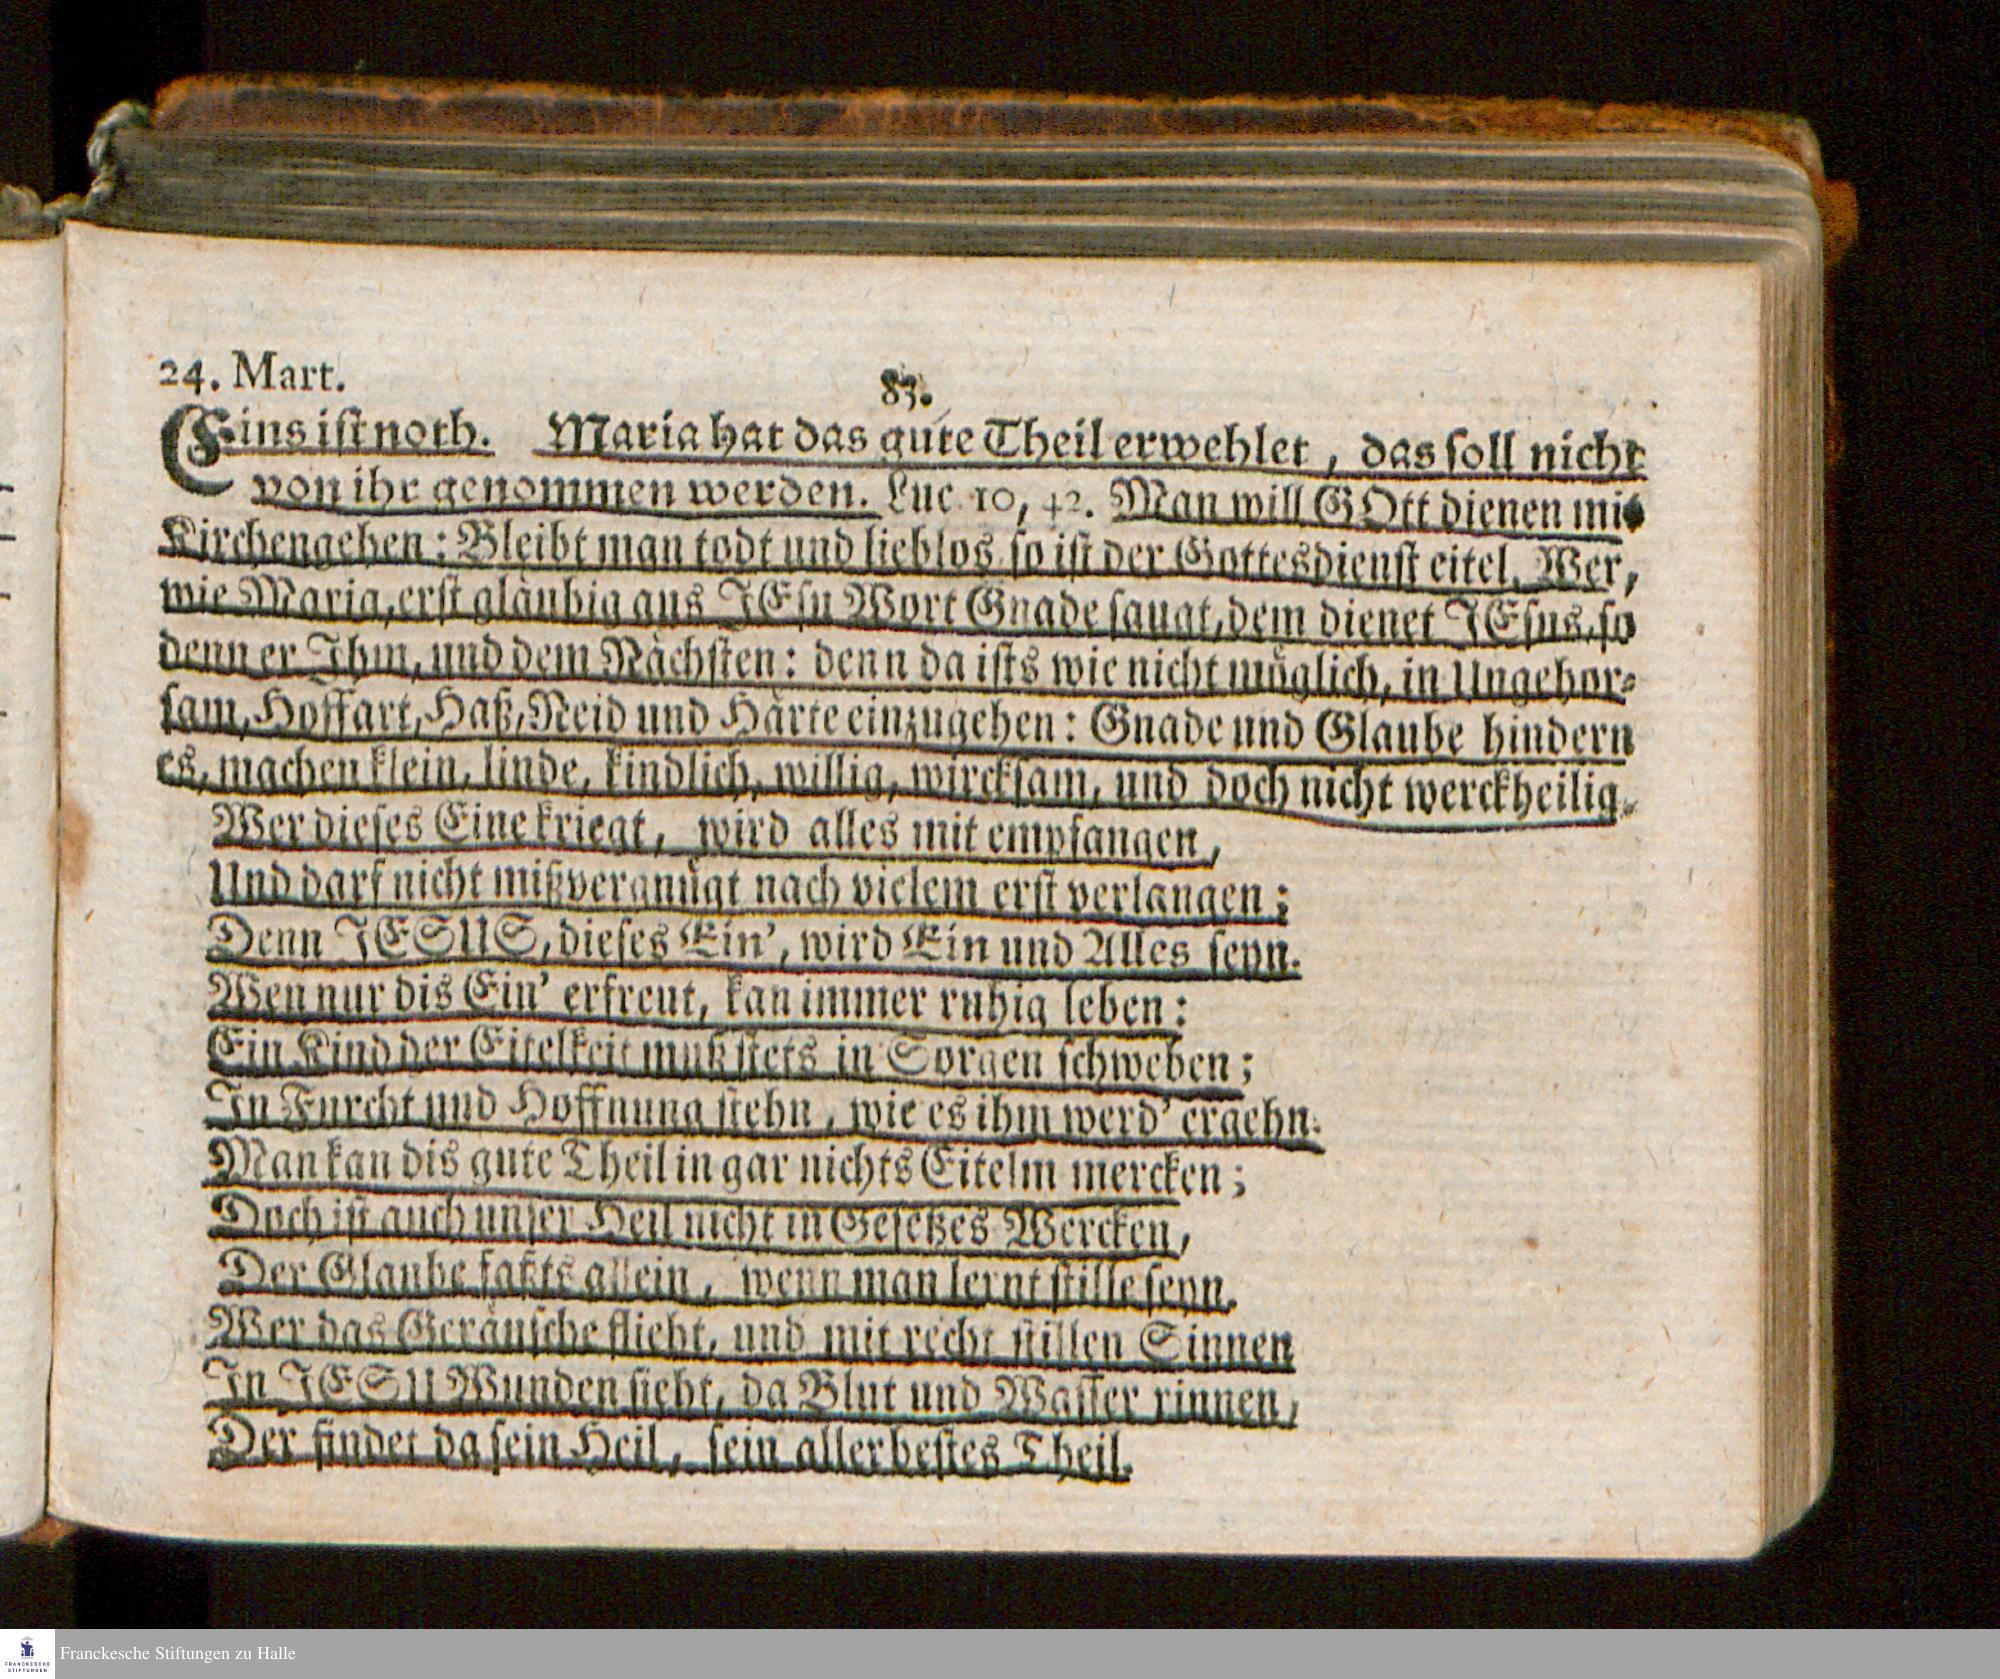 24. Mart.
83.
Eins ist noth. Maria hat das gute Theil erwehlet, das soll nicht
von ihr genommen werden. Luc. 10, 42. Man will GOtt dienen mit
Kirchengehen: Bleibt man todt und lieblos, so ist der Gottesdienst eitel. Wer,
wie Maria, erst gläubig aus JEsu Wort Gnade saugt, dem dienet JEsus, so
denn er Ihm, und dem Nächsten: denn da ists wie nicht möglich, in Ungehor-
sam, Hoffart, Haß, Neid und Härte einzugehen: Gnade und Glaube hindern
es, machen klein, linde, kindlich, willig, wircksam, und doch nicht werckheilig.
Wer dieses Eine kriegt, wird alles mit empfangen,
Und darf nicht mißvergnügt nach vielem erst verlangen;
Denn JESUS, dieses Ein', wird Ein und Alles seyn.
Wen nur dis Ein' erfreut, kan immer ruhig leben:
Ein Kind der Eitelkeit muß stets in Sorgen schweben;
In Furcht und Hoffnung stehn, wie es ihm werd' ergehn.
Man kan dis gute Theil in gar nichts Eitelm mercken;
Doch ist auch unser Heil nicht in Gesetzes Wercken,
Der Glaube faßts allein, wenn man lernt stille seyn.
Wer das Geräusche flieht, und mit recht stillen Sinnen
In JESU Wunden sieht, da Blut und Wasser rinnen,
Der findet da sein Heil, sein allerbestes Theil.
FRANCKESCHE
STIFTUNGEN
Franckesche Stiftungen zu Halle